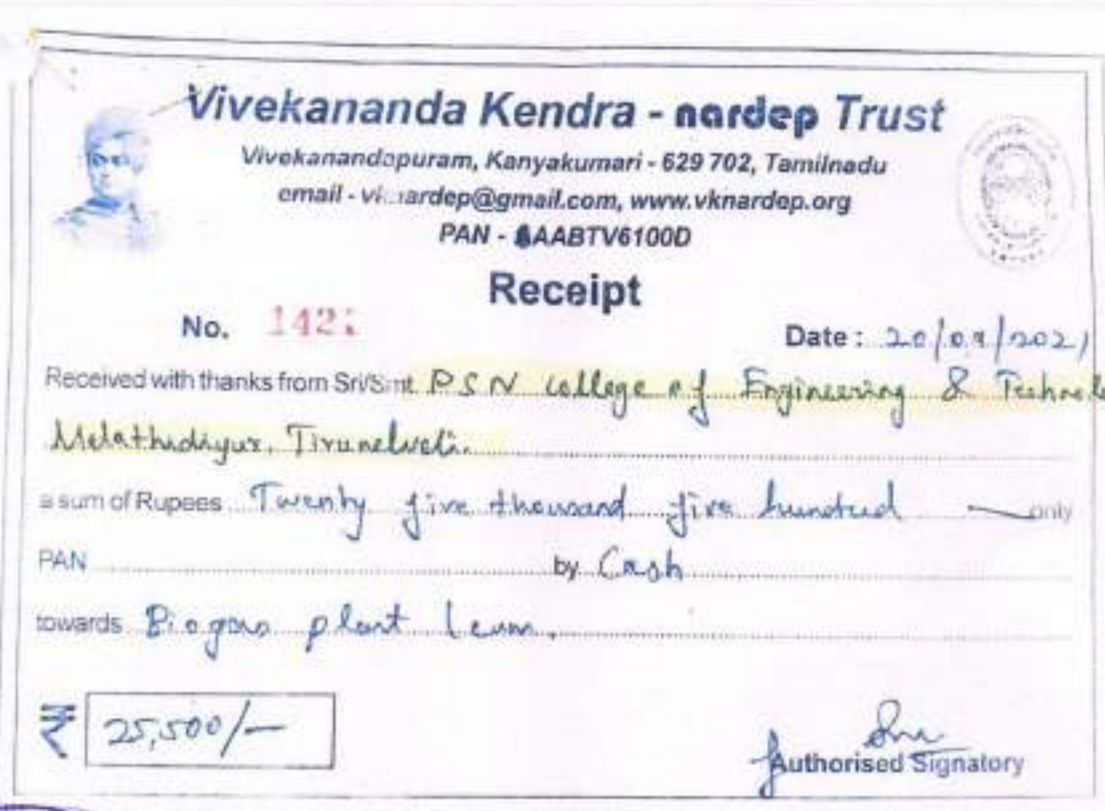 Vivekananda Kendra - nardep Trust
Vivekanandapuram, Kanyakumari - 629 702, Tamilnadu
email - vknardep@gmail.com, www.vknardep.org
PAN - AABTV6100D
Receipt
No. 142
Date : 20/09/2021
Received with thanks from Sri/Smt. PSN College of Engineering &
Melathidiyur, Tirunelveli.
a sum of Rupees Twenty five thousand five hundred only
PAN by Cash
towards Biogas plant 1cum.
₹ 25,500/-
Authorised Signatory